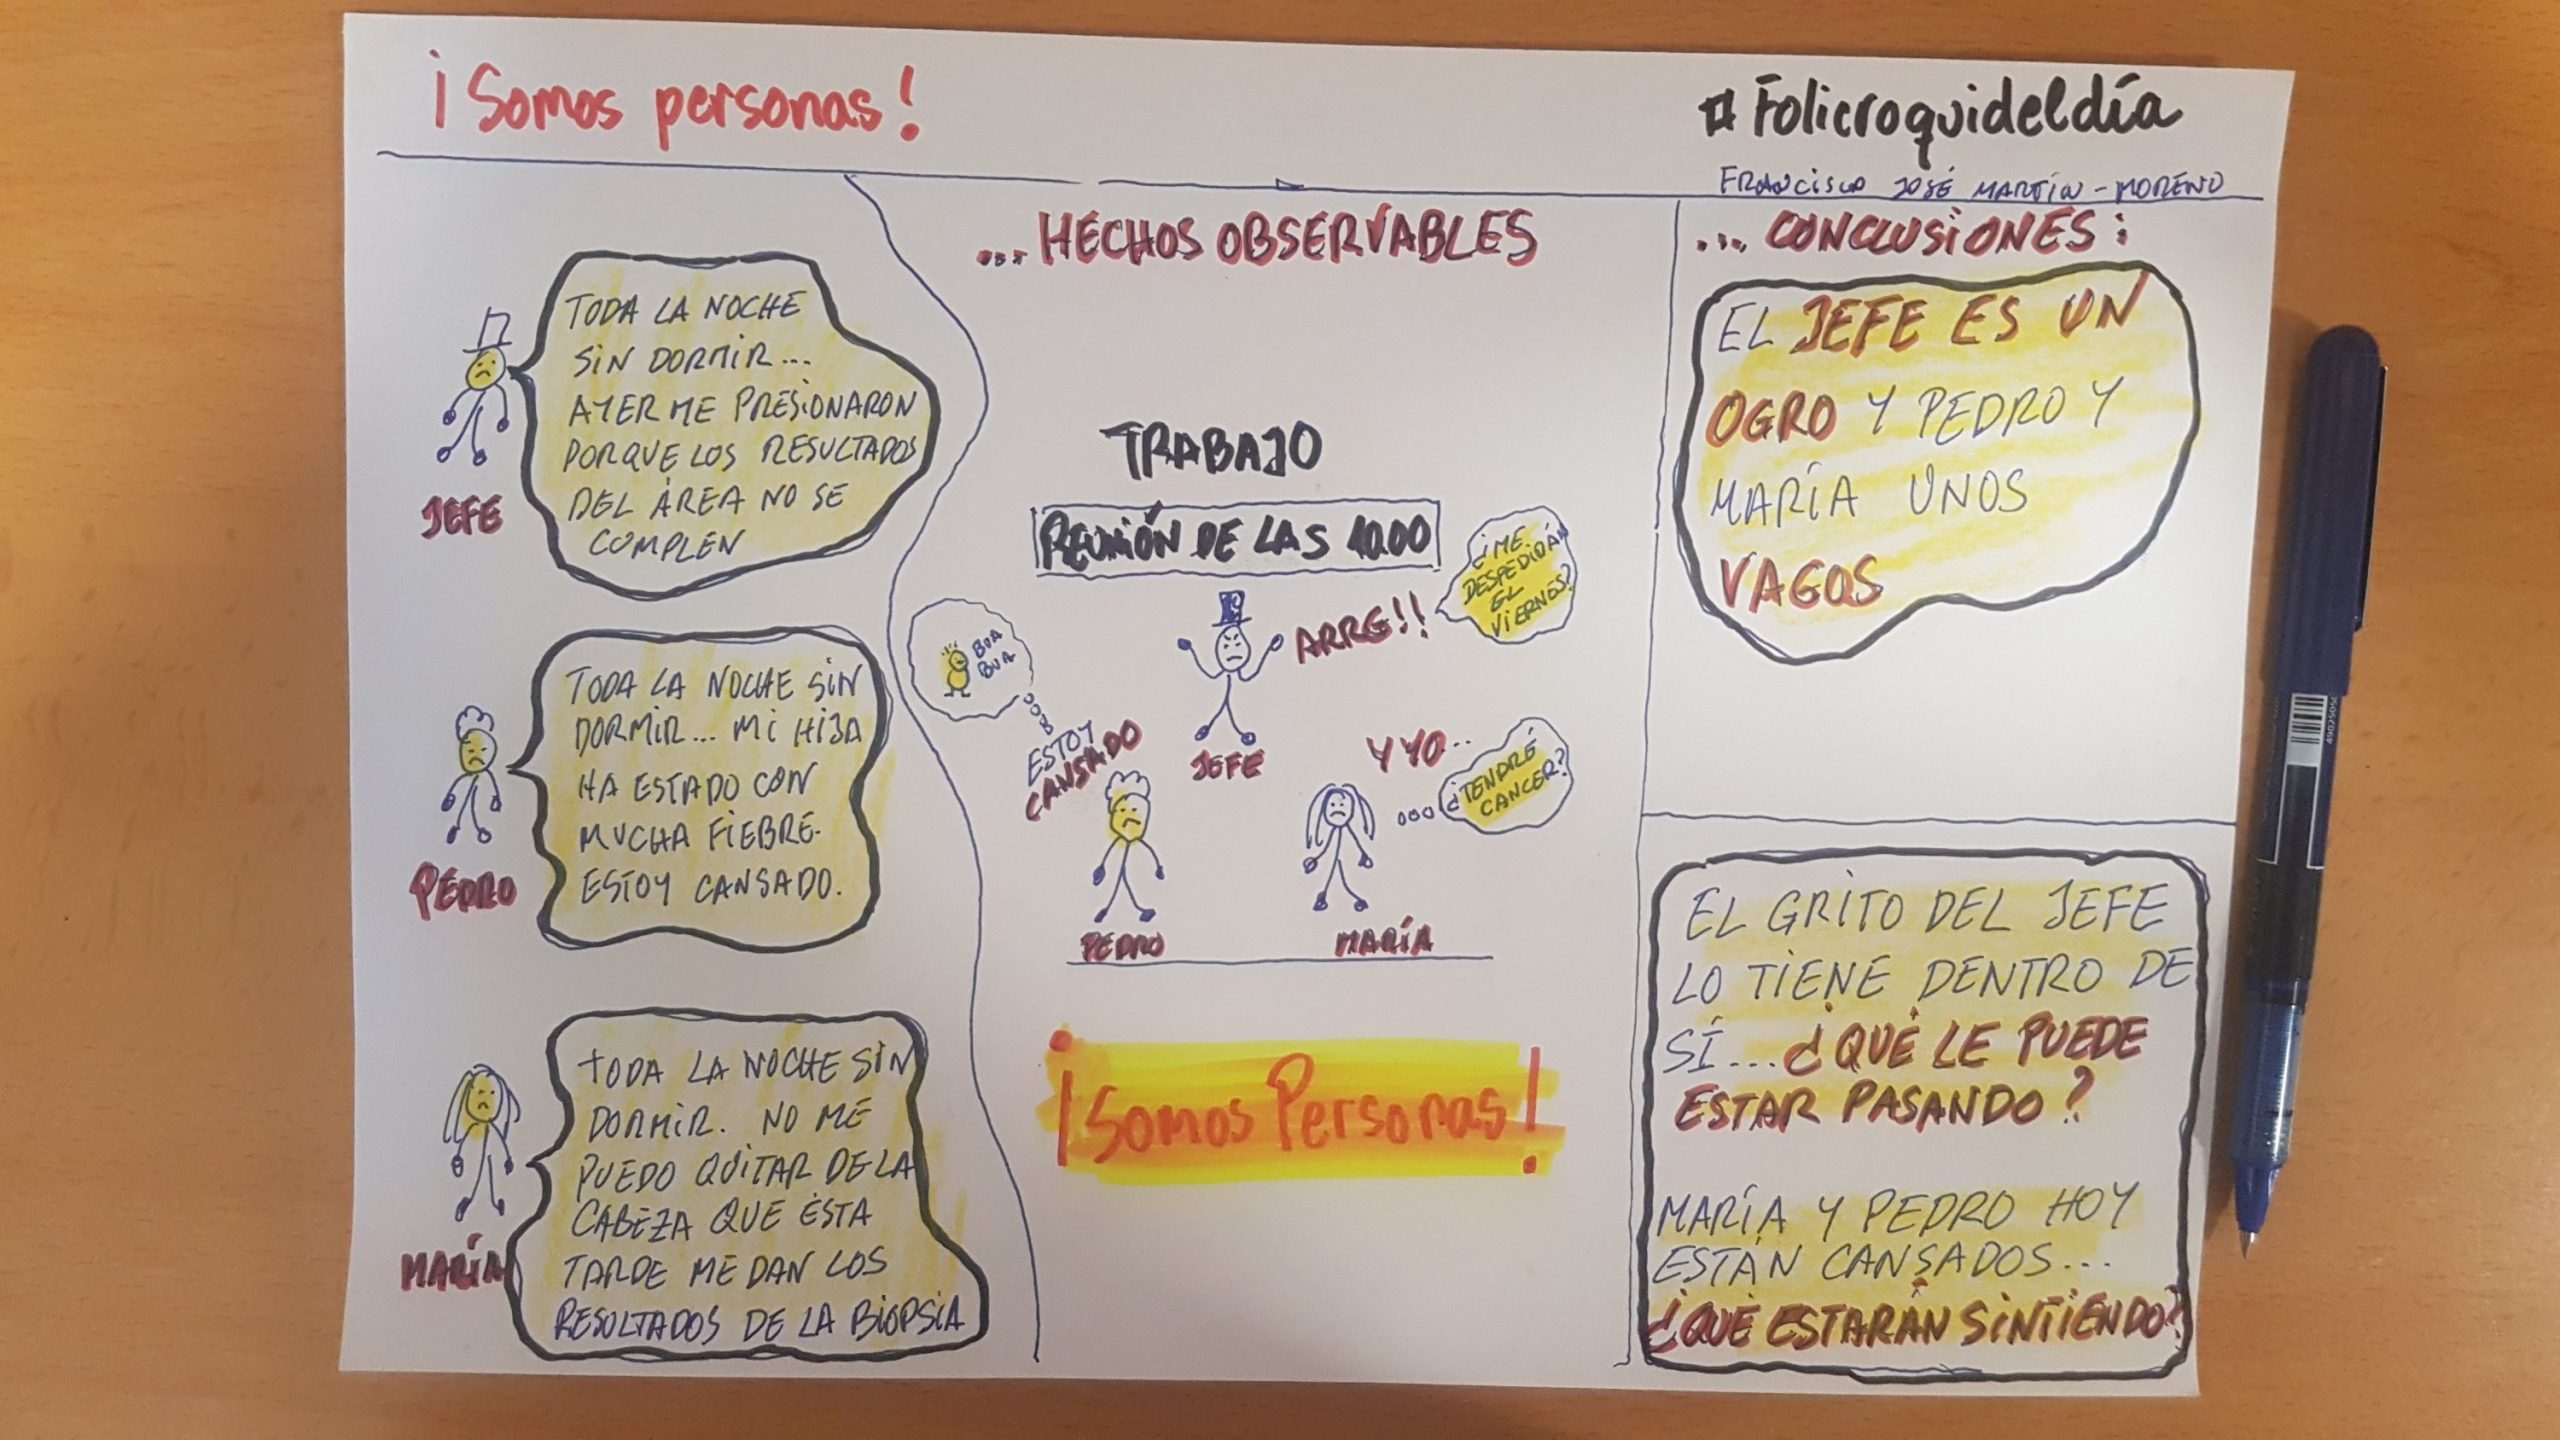 ¡Somos personas!
#Folicroquideldía
FRANCISCO JOSÉ MARTÍN-MORENO
TODA LA NOCHE
SIN DORMIR...
AYER ME PRESIONARON
PORQUE LOS RESULTADOS
DEL ÁREA NO SE
COMPLEN
JEFE
TODA LA NOCHE SIN
DORMIR... MI HIJA
HA ESTADO CON
MUCHA FIEBRE.
ESTOY CANSADO.
PEDRO
TODA LA NOCHE SIN
DORMIR. NO ME
PUEDO QUITAR DE LA
CABEZA QUE ÉSTA
TARDE ME DAN LOS
RESULTADOS DE LA BIOPSIA
MARÍA
...HECHOS OBSERVABLES
TRABAJO
REUNIÓN DE LAS 10.00
¿ME
DESPEDIRÁN
EL
VIERNES?
ARRE!!
BUA
BUA
ESTOY
CANSADO
JEFE
Y YO..
¿TENDRÉ
CANCER?
PEDRO
MARÍA
¡Somos Personas!
... CONCLUSIONES:
EL JEFE ES UN
OGRO Y PEDRO Y
MARÍA UNOS
VAGOS
EL GRITO DEL JEFE
LO TIENE DENTRO DE
SÍ... ¿QUÉ LE PUEDE
ESTAR PASANDO?
MARÍA Y PEDRO HOY
ESTÁN CANSADOS...
¿QUÉ ESTARÁN SINTIENDO?